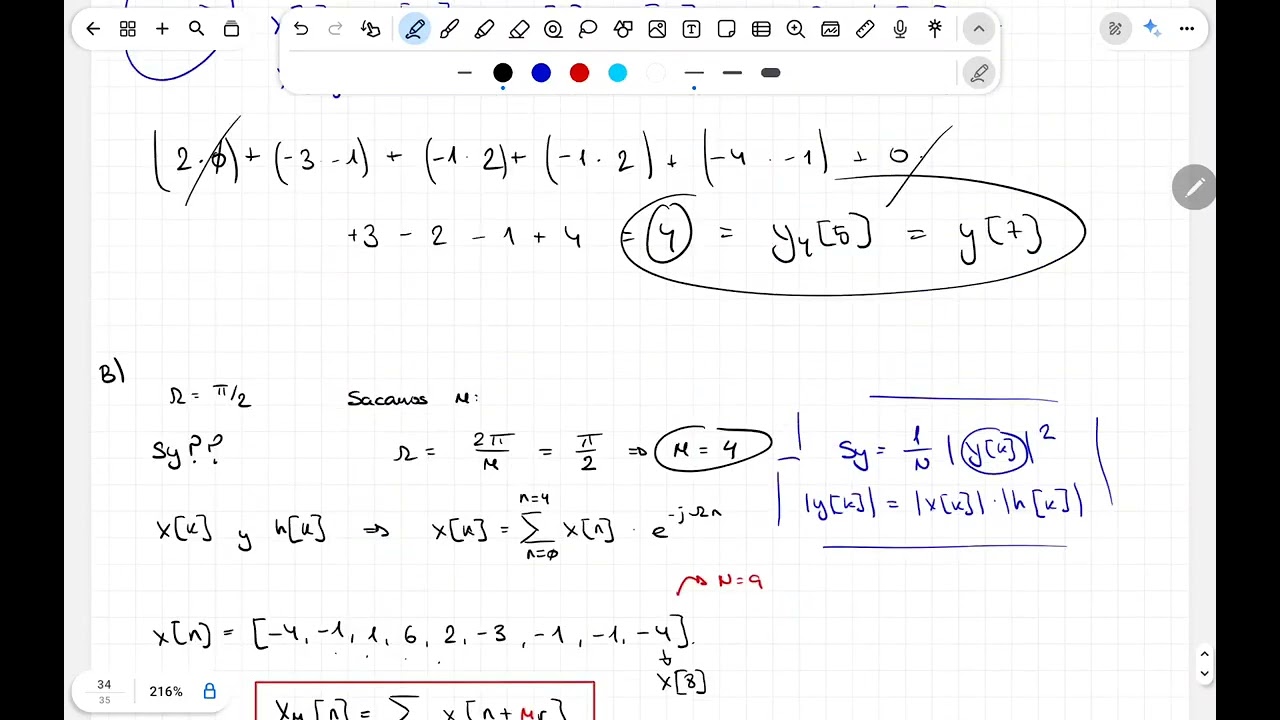 (2·φ) + (-3 · -1) + (-1 · 2) + (-1 · 2) + (-4 · -1) + 0
+3 - 2 - 1 + 4 = 4 = y₄[5] = y[7]
B)
Ω = π/2
Sacamos M:
Sy??
Ω = 2π/M = π/2 ⇒ M = 4
Sy = 1/N |y[k]|²
|y[k]| = |x[k]| · |h[k]|
x[k] y h[k] ⇒ x[k] = ∑ x[n] · e^(-jΩn)
n=4
n=φ
N=9
x[n] = [-4, -1, 1, 6, 2, -3, -1, -1, -4].
x[8]
x_M[n] = ∑ x[n+Mr]
34
35
216%